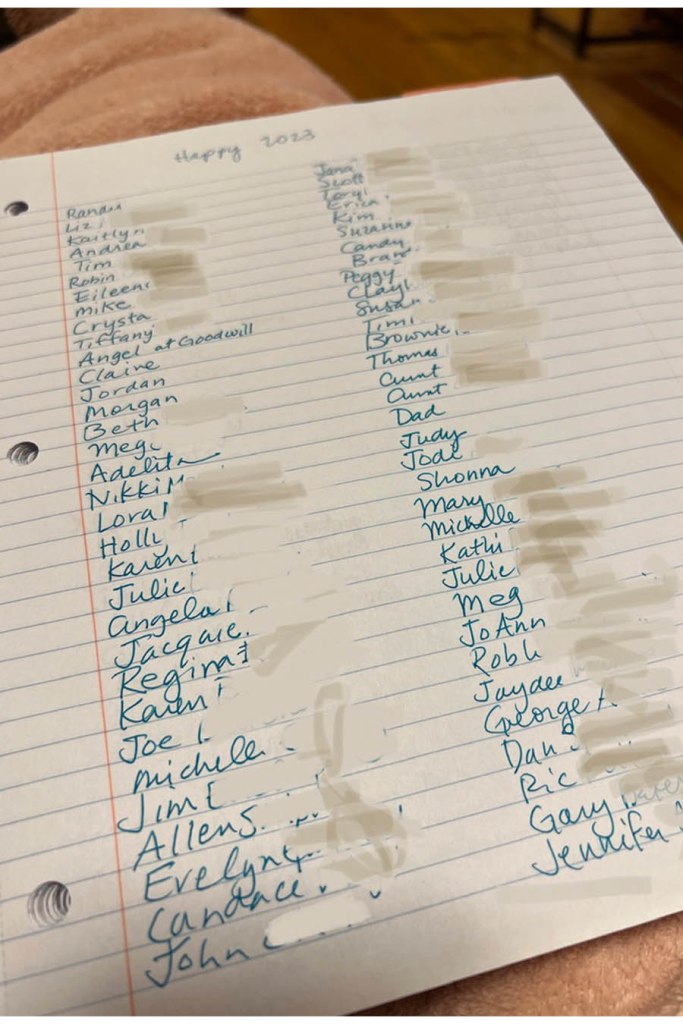 Happy 2023
Randy
Liz
Kaitlyn
Andrea
Tim
Robin
Eileen
Mike
Crysta
Tiffany
Angel at Goodwill
Claire
Jordan
Morgan
Beth
Meg
Adelita
Nikki
Lora
Holli
Karen
Julie
Angela
Jacquie
Regina
Karen
Joe
Michelle
Jim
Allens
Evelyn
Candace
John
Jana
Scott
Teryl
Erica
Kim
Suzanne
Candy
Brad
Peggy
Clay
Susan
Timi
Brownie
Thomas
Aunt
Aunt
Dad
Judy
Jodi
Shonna
Mary
Michelle
Kathi
Julie
Meg
JoAnn
Rob
Jaydee
George
Dan
Ric
Gary
Jennifer